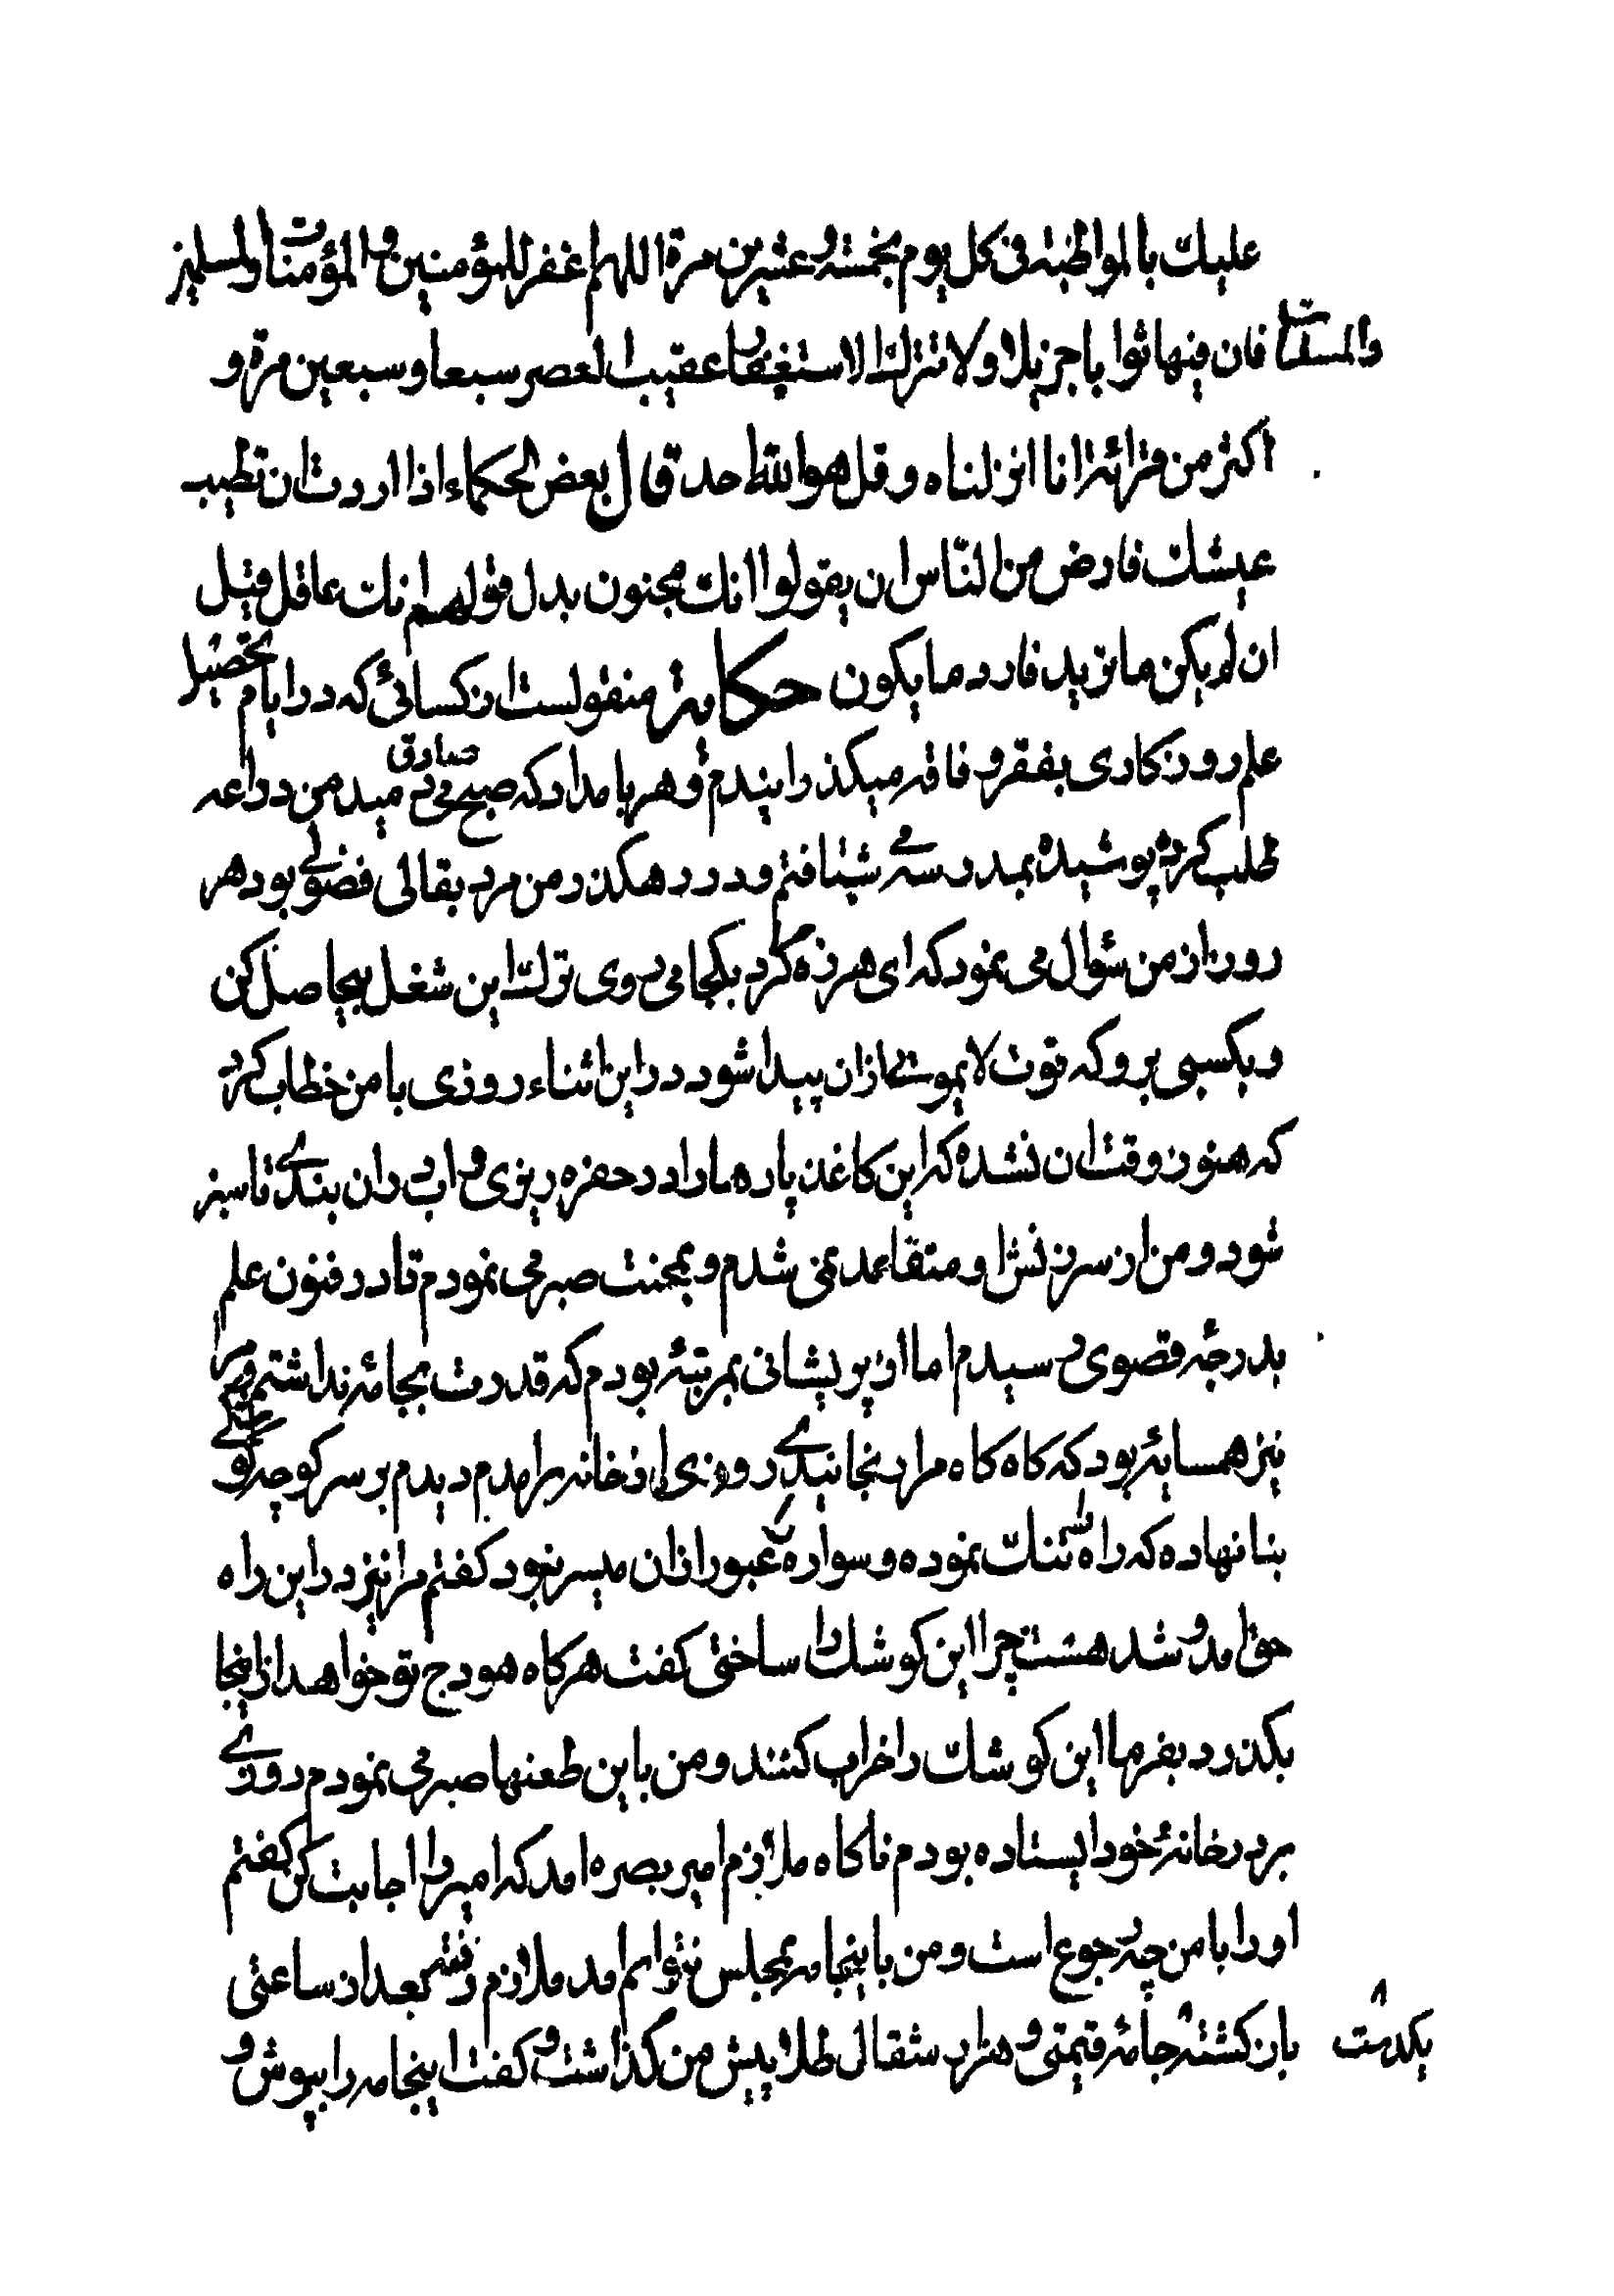 علیك بالمواظبة فی کل یوم بخمسة و عشرین مرة اللهم اغفر للمؤمنین و المؤمنات و المسلمین
و المسلمات فان فیها ثوابا جزیلا و لا تترك الاستغفار عقیب العصر سبعا و سبعین مرة و
اکثر من قرائة انا انزلناه و قل هو الله احد قال بعض الحکماء اذا اردت ان تطیب
عیشك فارض من الناس ان یقولوا انك مجنون بدل قولهم انك عاقل قیل
ان لم یکن ما ترید فارد ما یکون حکایة منقولست از کسائی که در ایام تحصیل
علم روزکاری بفقر و فاقه میکذرانیدم و هر بامداد که صبح صادق می دمید من دراعه
طلب کرده پوشیده بمدرسه می شتافتم و در رهکذر من مرد بقالی فضولی بود هر
روز از من سؤال می نمود که ای هرزه گرد بکجا می روی ترك این شغل بیحاصل کن
و بکسبی برو که قوت لایموتی از آن پیدا شود در این اثناء روزی با من خطاب کرد
که هنوز وقت ان نشده که این کاغذ پاره ها را در حفره ریزی و اب در ان بندی تا سبز
شود و من از سرزنش او متقاعد نمی شدم و بمحنت صبر می نمودم تا در فنون علم
بدرجه قصوی رسیدم اما از پریشانی بمرتبۀ بودم که قدرت بجامۀ نداشتم و مرا
نیز همسایۀ بود که کاه کاه مرا رنجانیدی روزی از خانه برامدم دیدم بر سر کوچه
بنا نهاده که راه تنك نموده و سواره عبور از ان میسر نبود کفتم مرا نیز در این راه
حق امد و شد هست چرا این کوشك را ساختی کفت هر کاه هودج تو خواهد از اینجا
بکذرد بفرما این کوشك را خراب کنند و من باین طعنها صبر می نمودم روزی
بر در خانۀ خود ایستاده بودم ناکاه ملازم امیر بصره امد که امیر را اجابت کن کفتم
او را با من چه رجوع است و من با اینجامه بمجلس نتوانم امد ملازم رفته بعد از ساعتی
باز کشته جامۀ قیمتی و هزار مثقال طلا پیش من گذاشت و کفت اینجامه را بپوش و
یکدست